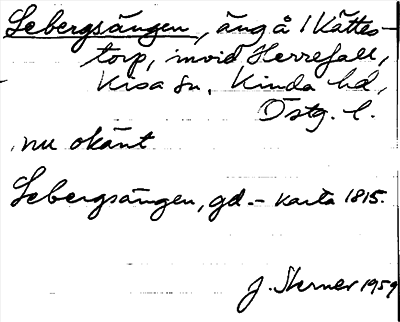 Lebergsängen, äng å 1 Kättes-
torp, invid Herrefall,
Kisa sn, Kinda hd,
Östg. l.
nu okänt
Lebergsängen, gd. - karta 1815.
J. Sterner 1959